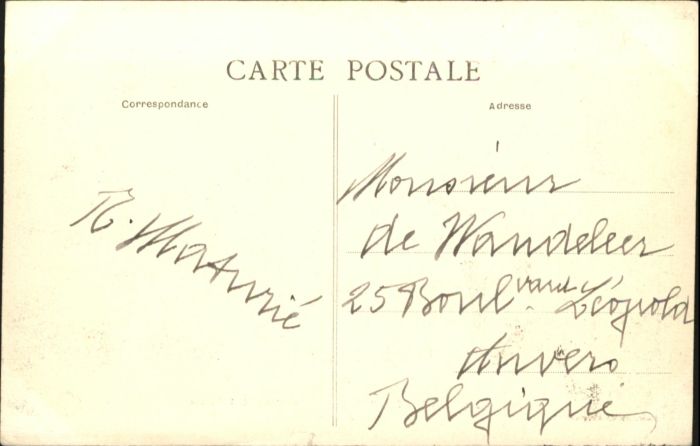 CARTE POSTALE
Correspondance
Adresse
R. Maturié
Monsieur
de Wandeleer
25 Boulvard Léopold
Anvers
Belgique